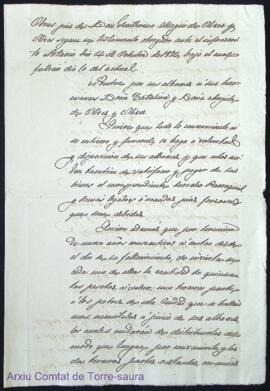 Obras pias de Don Guillermo Magin de Olives y
Olives segun su testamento otorgado ante el infrascrito
Notario dia 14 de Octubre de 1876, bajo el cual
falleció dia 10 del actual.
Nombra por sus albaceas á sus her-
manas Doña Catalina y Doña
de Olives y Olives.
Quiere que todo lo concerniente á
su entierro y funerales se haga á voluntad
y disposicion de sus albaceas y que ellas cui-
den tambien de satisfacer y pagar de sus
bienes el correspondiente derecho Parroquial
y demás legados ó mandas pias forzosas
que sean debidas.
Quiere además que por termino
de nueve años consecutivos á contar desde
el dia de su fallecimiento, se invierta cada
uno de ellos la cantidad de quinientas
pesetas á saber: una tercera parte
á los pobres de esta Ciudad que se hallen
mas necesitados á juicio de sus albaceas,
los cuales cuidarán de distribuirlas del
modo que tengan por conveniente y las
dos terceras partes restantes en misas
Arxiu Comtat de Torre-saura